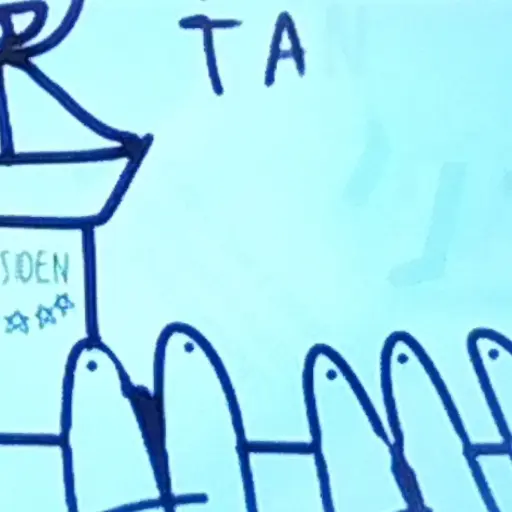 TAN
SIDEN